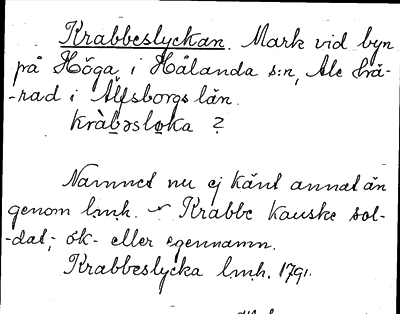 Krabbeslyckan. Mark vid byn
på Höga i Hålanda s:n, Ale hä-
-rad i Älfsborgs län.
kràb̲əslo̲ka ?
Namnet nu ej känt annat än
genom l.m.h. Krabbe kanske sol-
-dat-, ök- eller egennamn.
Krabbeslycka l.m.h. 1791.